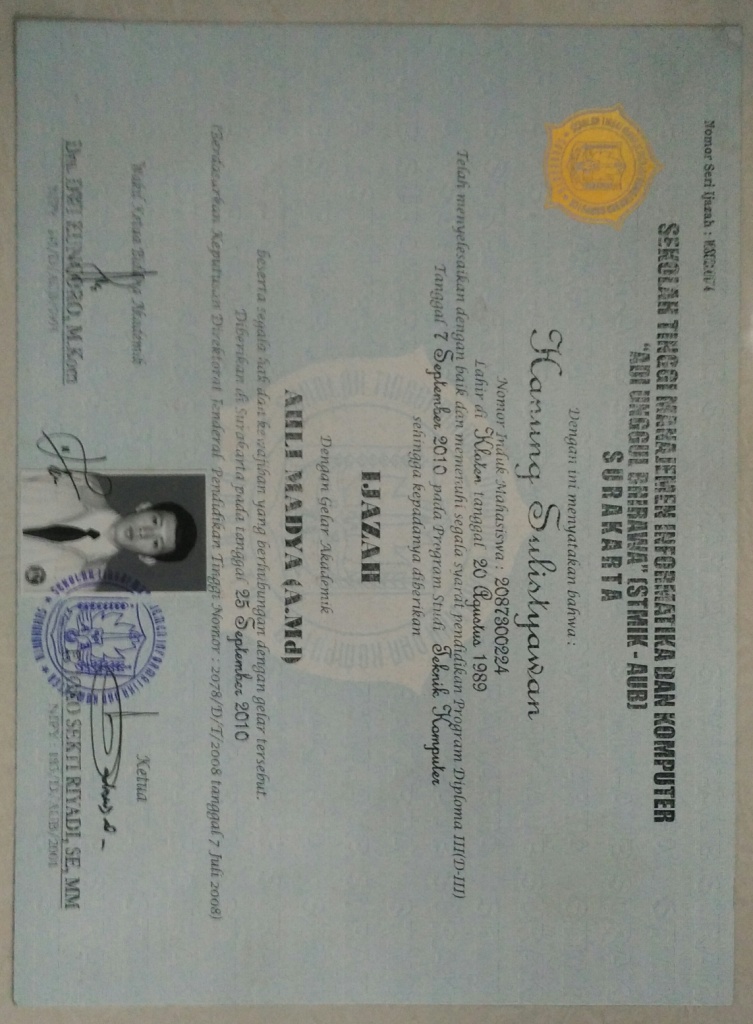 Nomor Seri Ijazah :
SEKOLAH TINGGI MANAJEMEN INFORMATIKA DAN KOMPUTER
"ADI UNGGUL BHIRAWA" (STMIK - AUB)
SURAKARTA
Dengan ini menyatakan bahwa :
Hanung Sulistyawan
Nomor Induk Mahasiswa : 2087300224
Lahir di Klaten tanggal 20 Agustus 1989
Telah menyelesaikan dengan baik dan memenuhi segala syarat pendidikan Program Diploma III(D-III)
Tanggal 7 September 2010 pada Program Studi Teknik Komputer
sehingga kepadanya diberikan
IJAZAH
Dengan Gelar Akademik
AHLI MADYA (A.Md)
beserta segala hak dan kewajiban yang berhubungan dengan gelar tersebut.
Diberikan di Surakarta pada tanggal 25 September 2010
(Berdasarkan Keputusan Direktorat Jenderal Pendidikan Tinggi Nomor : 2078/D/T/2008 tanggal 7 Juli 2008)
Wakil Ketua Bidang Akademik
Ketua
SEKTI RIYADI, SE, MM